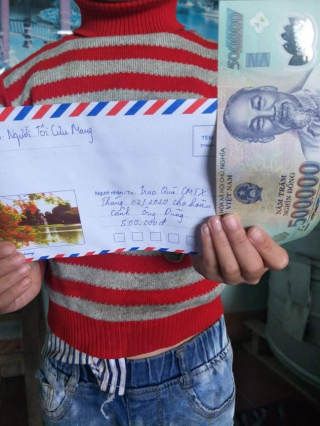 Người Tôi Cưu Mang
TEM
Người nhận / To: Trao Quà CMTX
Tháng 02/2020 cho hoàn
Cảnh Ông Dũng
500.000đ
500000
HÒA XÃ HỘI CHỦ NGHĨA
VIỆT NAM
NĂM TRĂM
NGHÌN ĐỒNG
500000